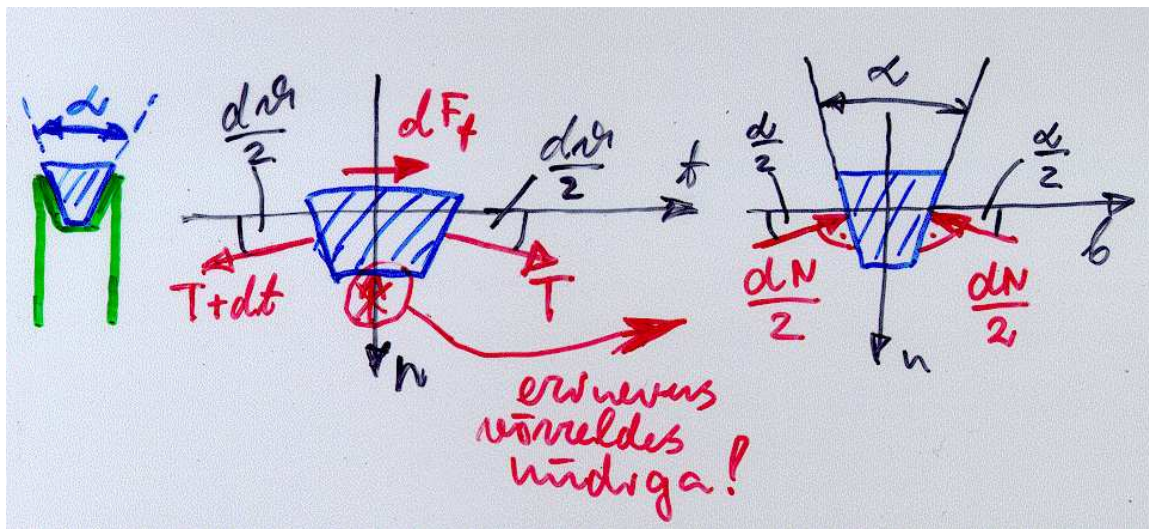 α
dϑ
2
dF_t
dϑ
2
t
T+dt
T
n
erinevus
võrreldes
niidiga!
α
α
2
α
2
b
dN
2
dN
2
n